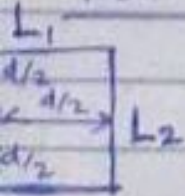 L₁
d/2
d/2
L₂
d/2